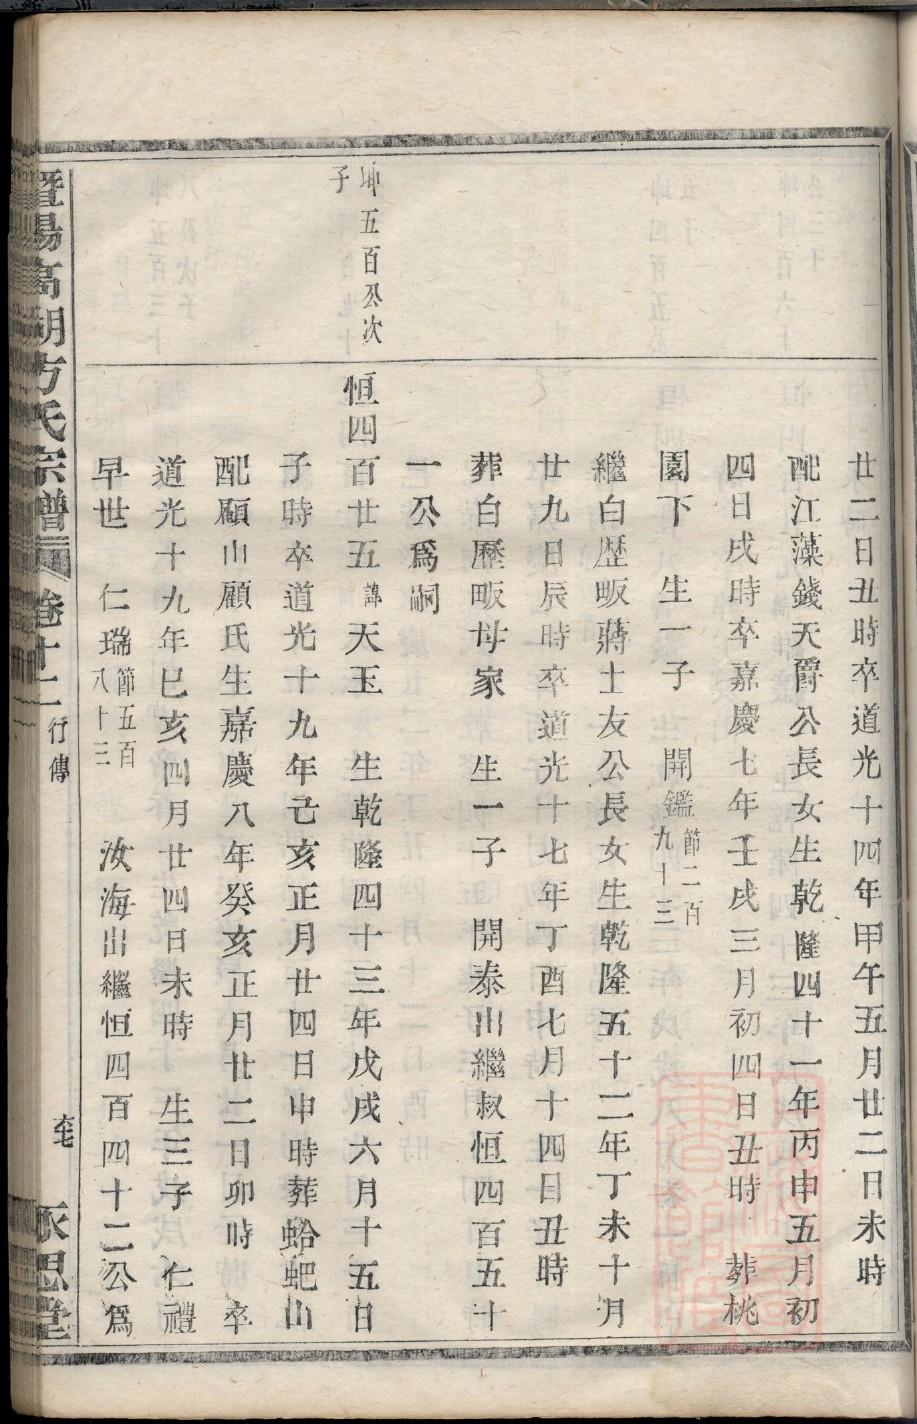 廿二日丑時卒道光十四年甲午五月廿二日未時
配江藻錢天爵公長女生乾隆四十一年丙申五月初
四日戌時卒嘉慶七年壬戌三月初四日丑時 葬桃
園下 生一子 開鑑節二百九十三
繼白歴畈蔣士友公長女生乾隆五十二年丁未十月
廿九日辰時卒道光十七年丁酉七月十四日丑時
葬白歷畈母家 生一子 開泰出繼叔恒四百五十
一公爲嗣
坤五百公次子
恒四百廿五諱天玉 生乾隆四十三年戊戌六月十五日
子時卒道光十九年己亥正月廿四日申時葬蛤蚆山
配顧山顧氏生嘉慶八年癸亥正月廿二日卯時 卒
道光十九年己亥四月廿四日未時 生三子 仁禮
早世 仁瑞節五百八十三 汝海出繼恒四百四十二公爲
暨陽高湖方氏宗譜 卷十二 行傳 永思堂